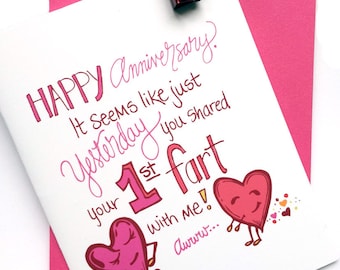 HAPPY Anniversary.
It seems like just
Yesterday you shared
your 1st fart
with me!
Awww...